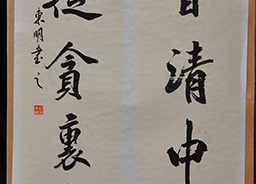 清中
從貪裏
東明書之